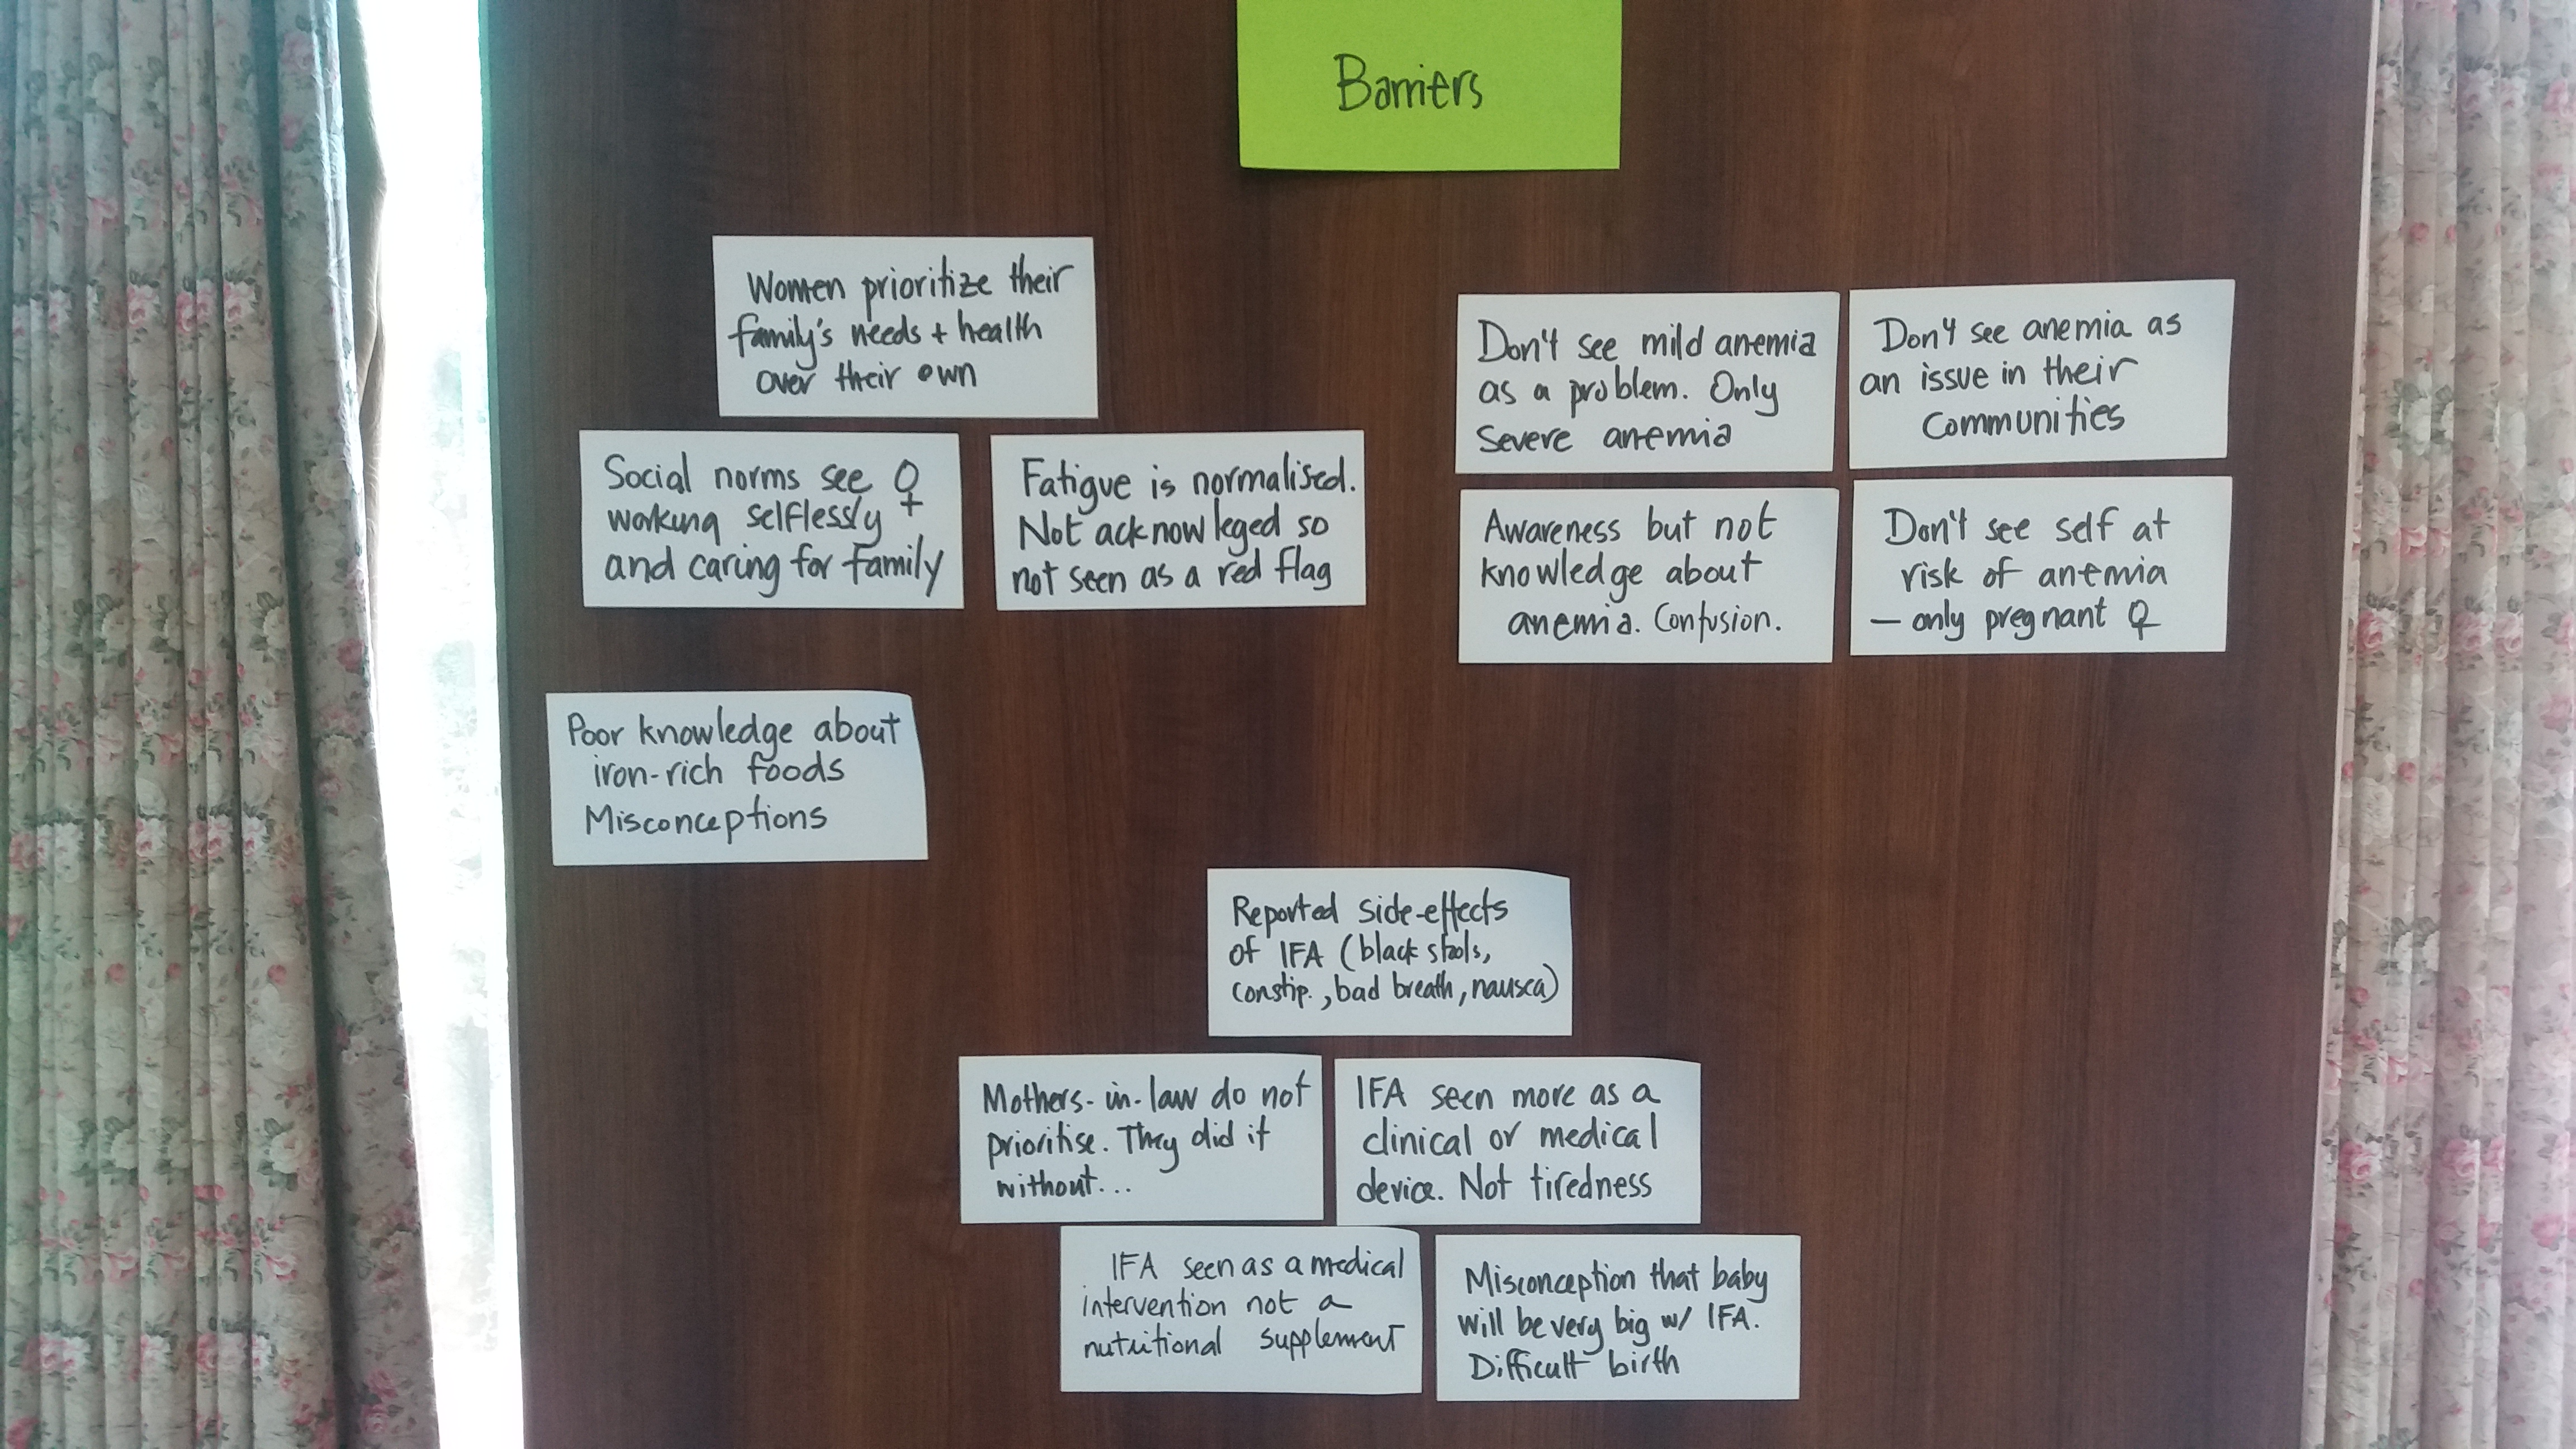 Barriers
Women prioritize their
family's needs + health
over their own
Social norms see ♀
working selflessly
and caring for family
Fatigue is normalised.
Not acknowleged so
not seen as a red flag
Don't see mild anemia
as a problem. Only
severe anemia
Don't see anemia as
an issue in their
communities
Awareness but not
knowledge about
anemia. Confusion.
Don't see self at
risk of anemia
– only pregnant ♀
Poor knowledge about
iron-rich foods
Misconceptions
Reported side-effects
of IFA (black stools,
constip., bad breath, nausea)
Mothers-in-law do not
prioritise. They did it
without...
IFA seen more as a
clinical or medical
device. Not tiredness
IFA seen as a medical
intervention not a
nutritional supplement
Misconception that baby
will be very big w/ IFA.
Difficult birth